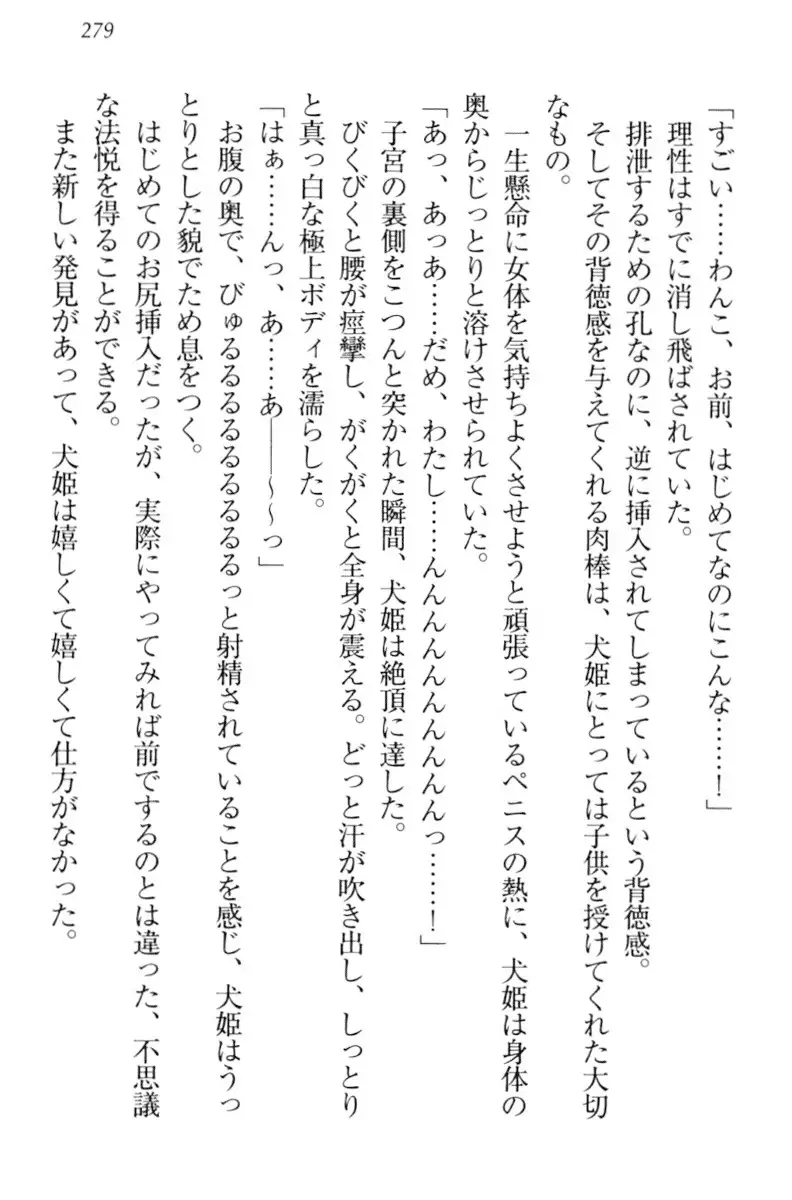 279
「すごい……わんこ、お前、はじめてなのにこんな……！」
理性はすでに消し飛ばされていた。
排泄するための孔なのに、逆に挿入されてしまっているという背徳感。
そしてその背徳感を与えてくれる肉棒は、犬姫にとっては子供を授けてくれた大切
なもの。
一生懸命に女体を気持ちよくさせようと頑張っているペニスの熱に、犬姫は身体の
奥からじっとりと溶けさせられていた。
「あっ、あっあ……だめ、わたし……んんんんんんんんんっ……！」
子宮の裏側をこつんと突かれた瞬間、犬姫は絶頂に達した。
びくびくと腰が痙攣し、がくがくと全身が震える。どっと汗が吹き出し、しっとり
と真っ白な極上ボディを濡らした。
「はぁ……んっ、あ……あ――〜〜っ」
お腹の奥で、びゅるるるるるるるるっと射精されていることを感じ、犬姫はうっ
とりとした貌でため息をつく。
はじめてのお尻挿入だったが、実際にやってみれば前でするのとは違った、不思議
な法悦を得ることができる。
また新しい発見があって、犬姫は嬉しくて嬉しくて仕方がなかった。